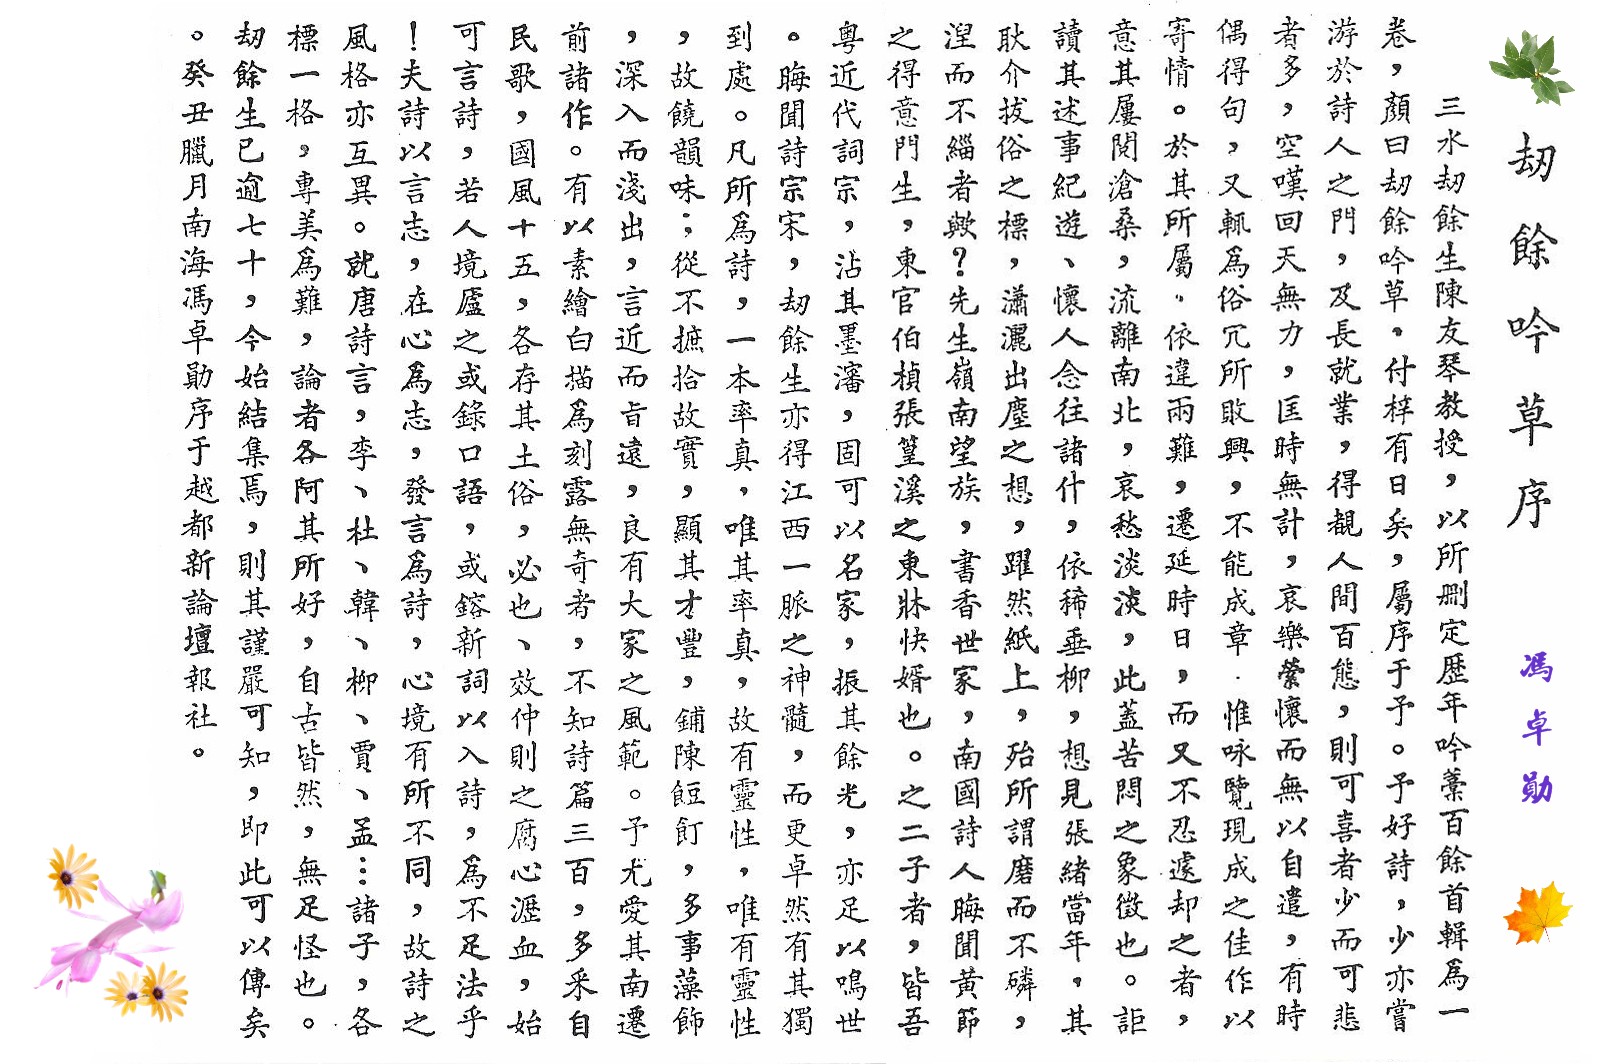 劫餘吟草序　馮卓勛
三水劫餘生陳友琴教授，以所刪定歷年吟藁百餘首輯爲一
卷，顏曰劫餘吟草。付梓有日矣，屬序于予。予好詩，少亦嘗
游於詩人之門，及長就業，得覩人間百態，則可喜者少而可悲
者多，空嘆回天無力，匡時無計，哀樂縈懷而無以自遣，有時
偶得句，又輒爲俗冗所敗興，不能成章．惟咏覽現成之佳作以
寄情。於其所屬，依違兩難，遷延時日，而又不忍遽却之者，
意其屢閱滄桑，流離南北，哀愁淡淡，此蓋苦悶之象徵也。詎
讀其述事紀遊、懷人念往諸什，依稀垂柳，想見張緒當年，其
耿介拔俗之標，瀟灑出塵之想，躍然紙上，殆所謂磨而不磷，
湼而不緇者歟？先生嶺南望族，書香世家，南國詩人晦聞黃節
之得意門生，東官伯楨張篁溪之東牀快婿也。之二子者，皆吾
粤近代詞宗，沾其墨瀋，固可以名家，振其餘光，亦足以鳴世
。晦聞詩宗宋，劫餘生亦得江西一脈之神髓，而更卓然有其獨
到處。凡所爲詩，一本率真，唯其率真，故有靈性，唯有靈性
，故饒韻味；從不摭拾故實，顯其才豐，鋪陳餖飣，多事藻飾
，深入而淺出，言近而旨遠，良有大家之風範。予尤愛其南遷
前諸作。有以素繪白描爲刻露無奇者，不知詩篇三百，多釆自
民歌，國風十五，各存其土俗，必也、效仲則之腐心瀝血，始
可言詩，若人境廬之或錄口語，或鎔新詞以入詩，爲不足法乎
！夫詩以言志，在心爲志，發言爲詩，心境有所不同，故詩之
風格亦互異。就唐詩言，李、杜、韓、柳、賈、孟…諸子，各
標一格，專美爲難，論者各阿其所好，自古皆然，無足怪也。
劫餘生已逾七十，今始結集焉，則其謹嚴可知，即此可以傳矣
。癸丑臘月南海馮卓勛序于越都新論壇報社。